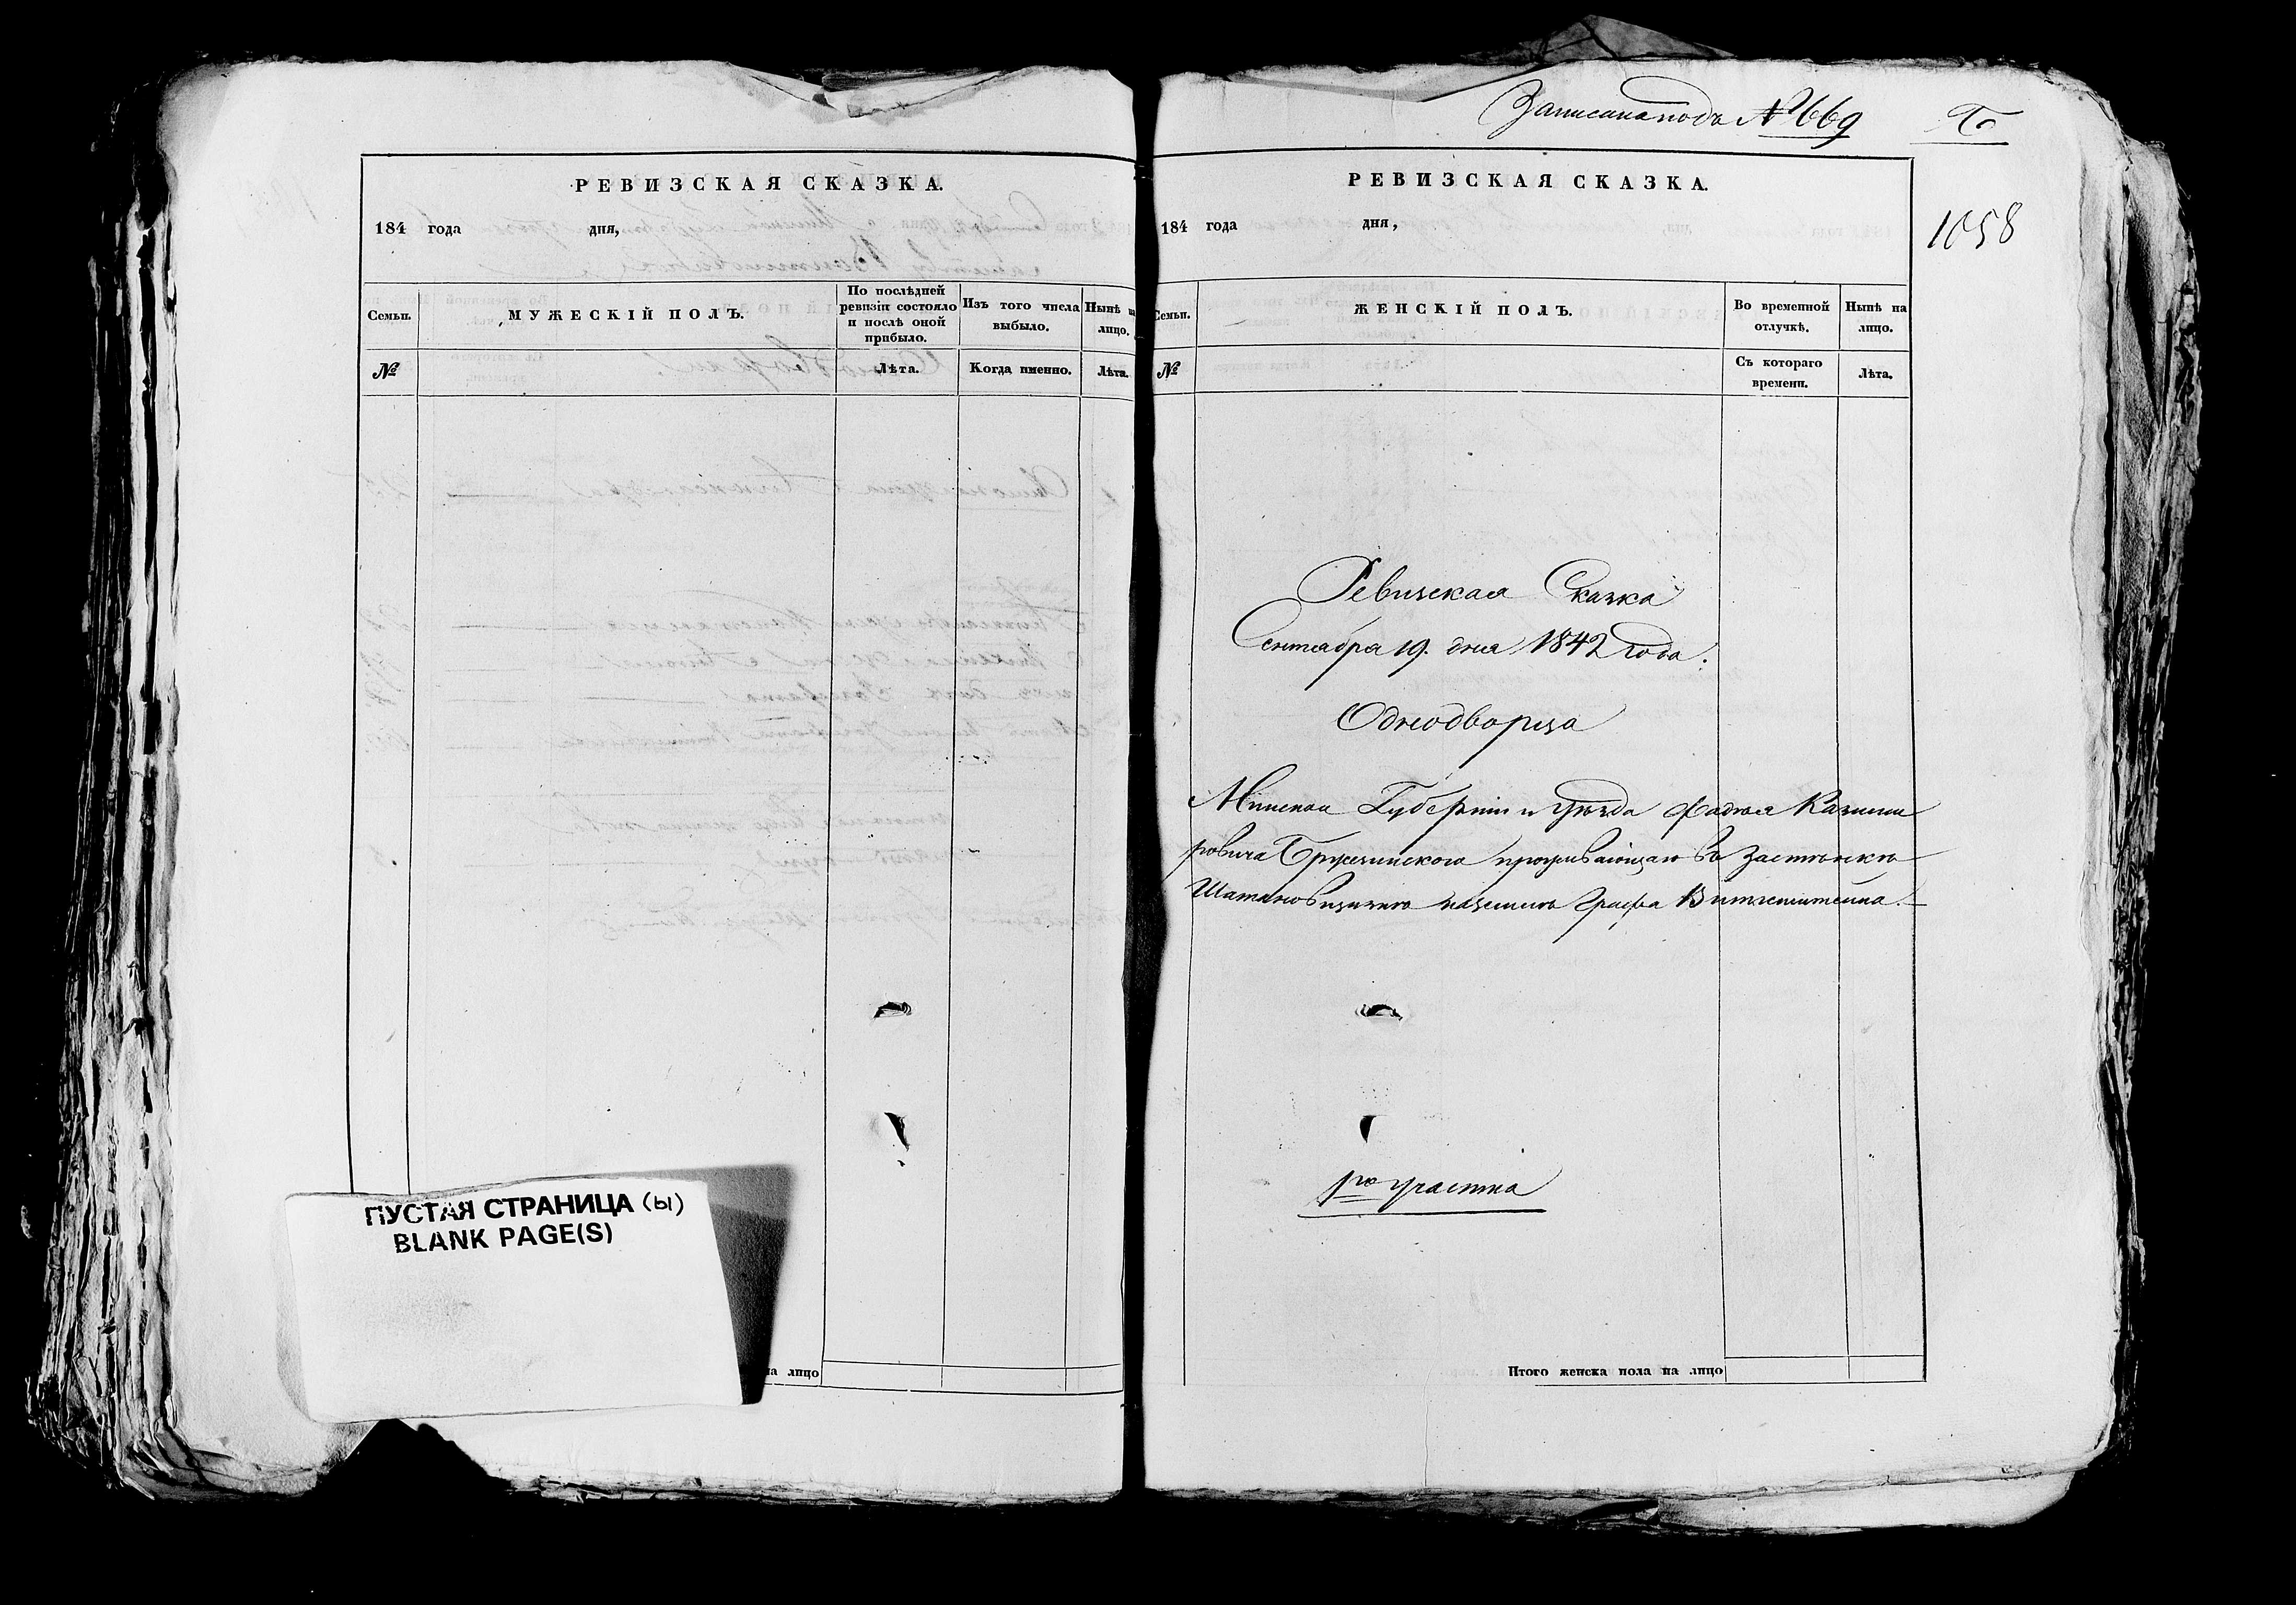 РЕВИЗСКАЯ СКАЗКА.
184 года дня,
Семьи. МУЖЕСКІЙ ПОЛЪ. По послѣдней ревизіи состояло и послѣ оной прибыло. Изъ того числа выбыло. Нынѣ на лицо.
№ Лѣта. Когда именно. Лѣта.
ПУСТАЯ СТРАНИЦА (ы)
BLANK PAGE(S)
на лицо
Записана подъ № 669
1058
РЕВИЗСКАЯ СКАЗКА.
184 года дня,
Семьи. ЖЕНСКІЙ ПОЛЪ. Во временной отлучкѣ. Нынѣ на лицо.
№ Съ котораго времени. Лѣта.
Ревизская Сказка
Сентября 19. дня 1842 года.
Однодворца
Минской Губерніи и уѣзда Фадѣя Казими
ровича проживающаго въ застѣнкѣ
Графа Витгенштейна.
1го участка
Итого женска пола на лицо